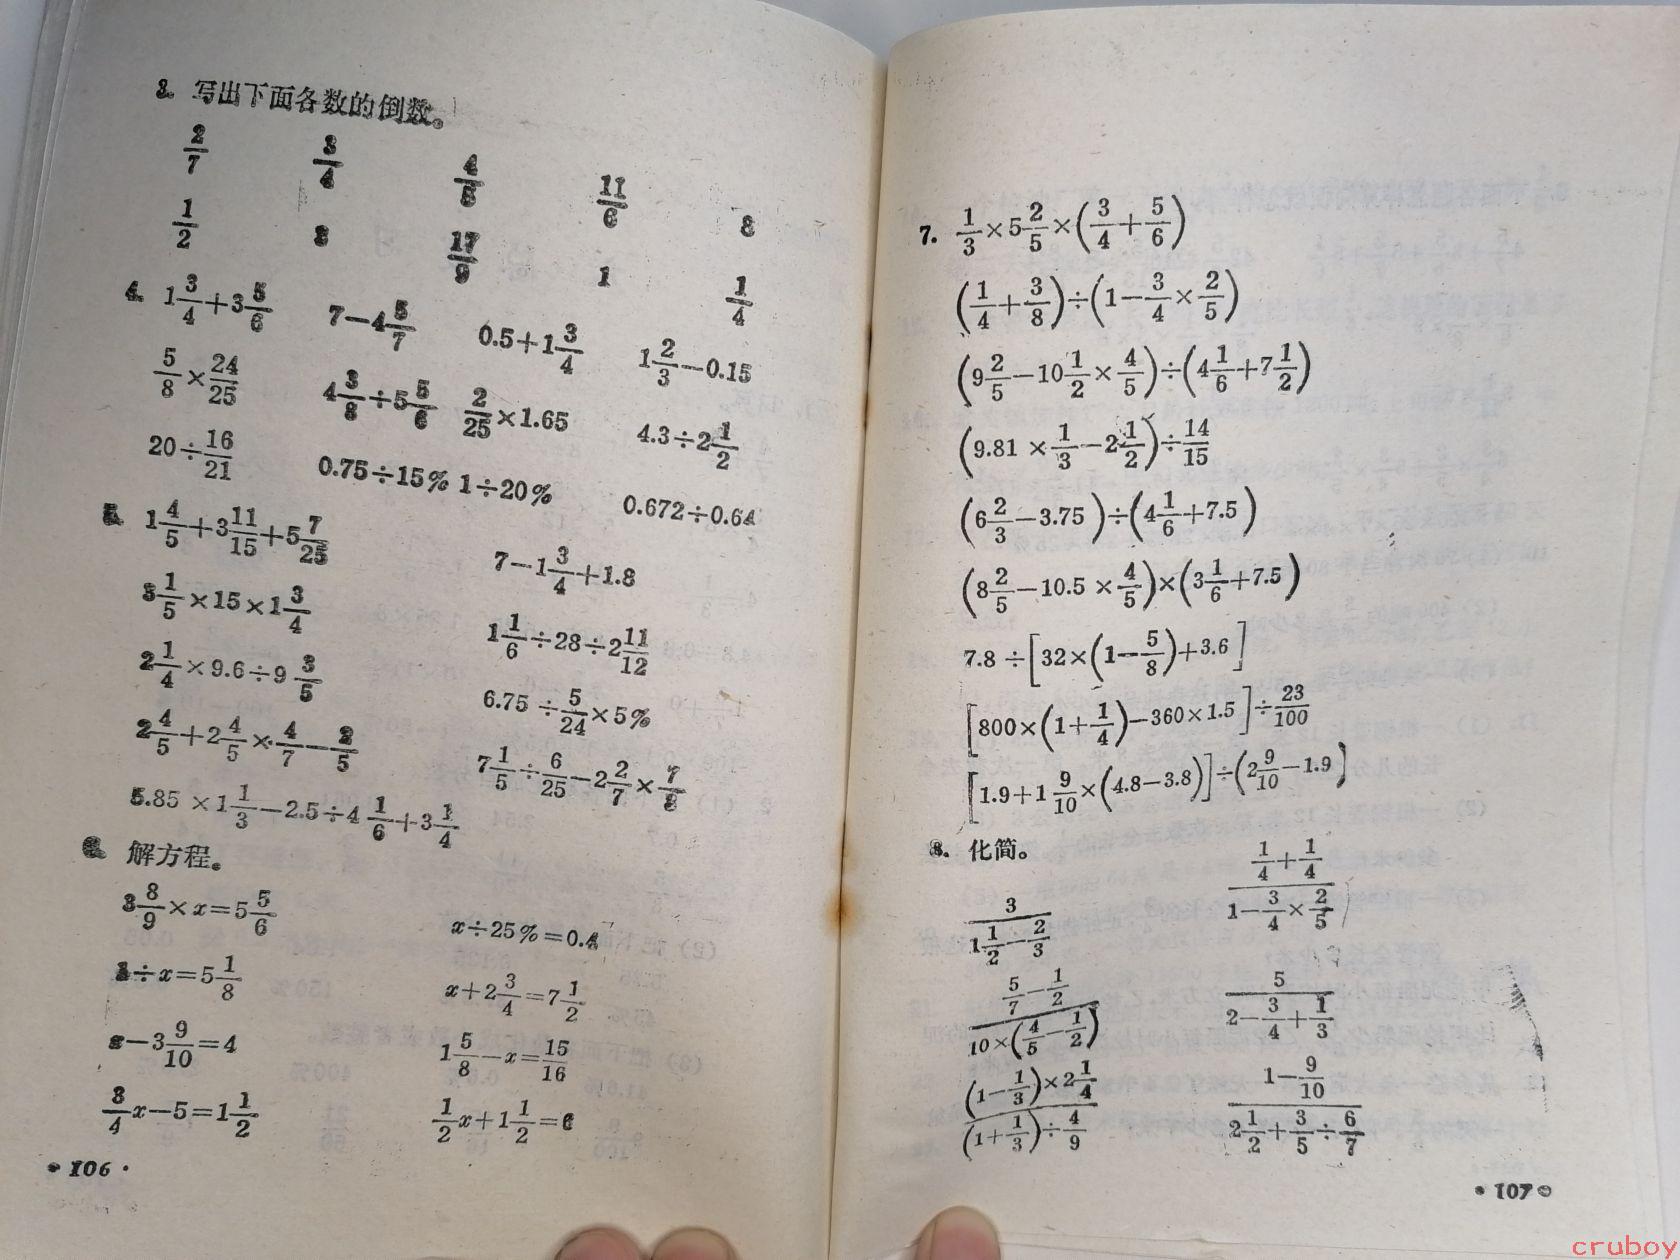 3. 写出下面各数的倒数。
2/7 3/4 4/5 11/6 8
1/2 3 17/9 1 1/4
4. 1 3/4+3 5/6 7-4 5/7 0.5+1 3/4 1 2/3-0.15
5/8×24/25 4 3/8÷5 5/6 2/25×1.65 4.3÷2 1/2
20÷16/21 0.75÷15% 1÷20% 0.672÷0.64
5. 1 4/5+3 11/15+5 7/25 7-1 3/4+1.8
3 1/5×15×1 3/4 1 1/6÷28÷2 11/12
2 1/4×9.6÷9 3/5 6.75÷5/24×5%
2 4/5+2 4/5×4/7-2/5 7 1/5÷6/25-2 2/7×7/8
5.85×1 1/3-2.5÷4 1/6+3 1/4
6. 解方程。
3 8/9×x=5 5/6 x÷25%=0.4
÷x=5 1/8 x+2 3/4=7 1/2
x-3 9/10=4 1 5/8-x=15/16
3/4x-5=1 1/2 1/2x+1 1/2=6
•106•
7. 1/3×5 2/5×(3/4+5/6)
(1/4+3/8)÷(1-3/4×2/5)
(9 2/5-10 1/2×4/5)÷(4 1/6+7 1/2)
(9.81×1/3-2 1/2)÷14/15
(6 2/3-3.75)÷(4 1/6+7.5)
(8 2/5-10.5×4/5)×(3 1/6+7.5)
7.8÷[32×(1-5/8)+3.6]
[800×(1+1/4)-360×1.5]÷23/100
[1.9+1 9/10×(4.8-3.8)]÷(2 9/10-1.9)
8. 化简。
3/(1 1/2-2/3) (1/4+1/4)/(1-3/4×2/5)
(5/7-1/2)/(10×(4/5-1/2)) 5/(2-3/4+1/3)
((1-1/3)×2 1/4)/((1+1/3)÷4/9) (1-9/10)/(2 1/2+3/5÷6/7)
•107•
cruboy